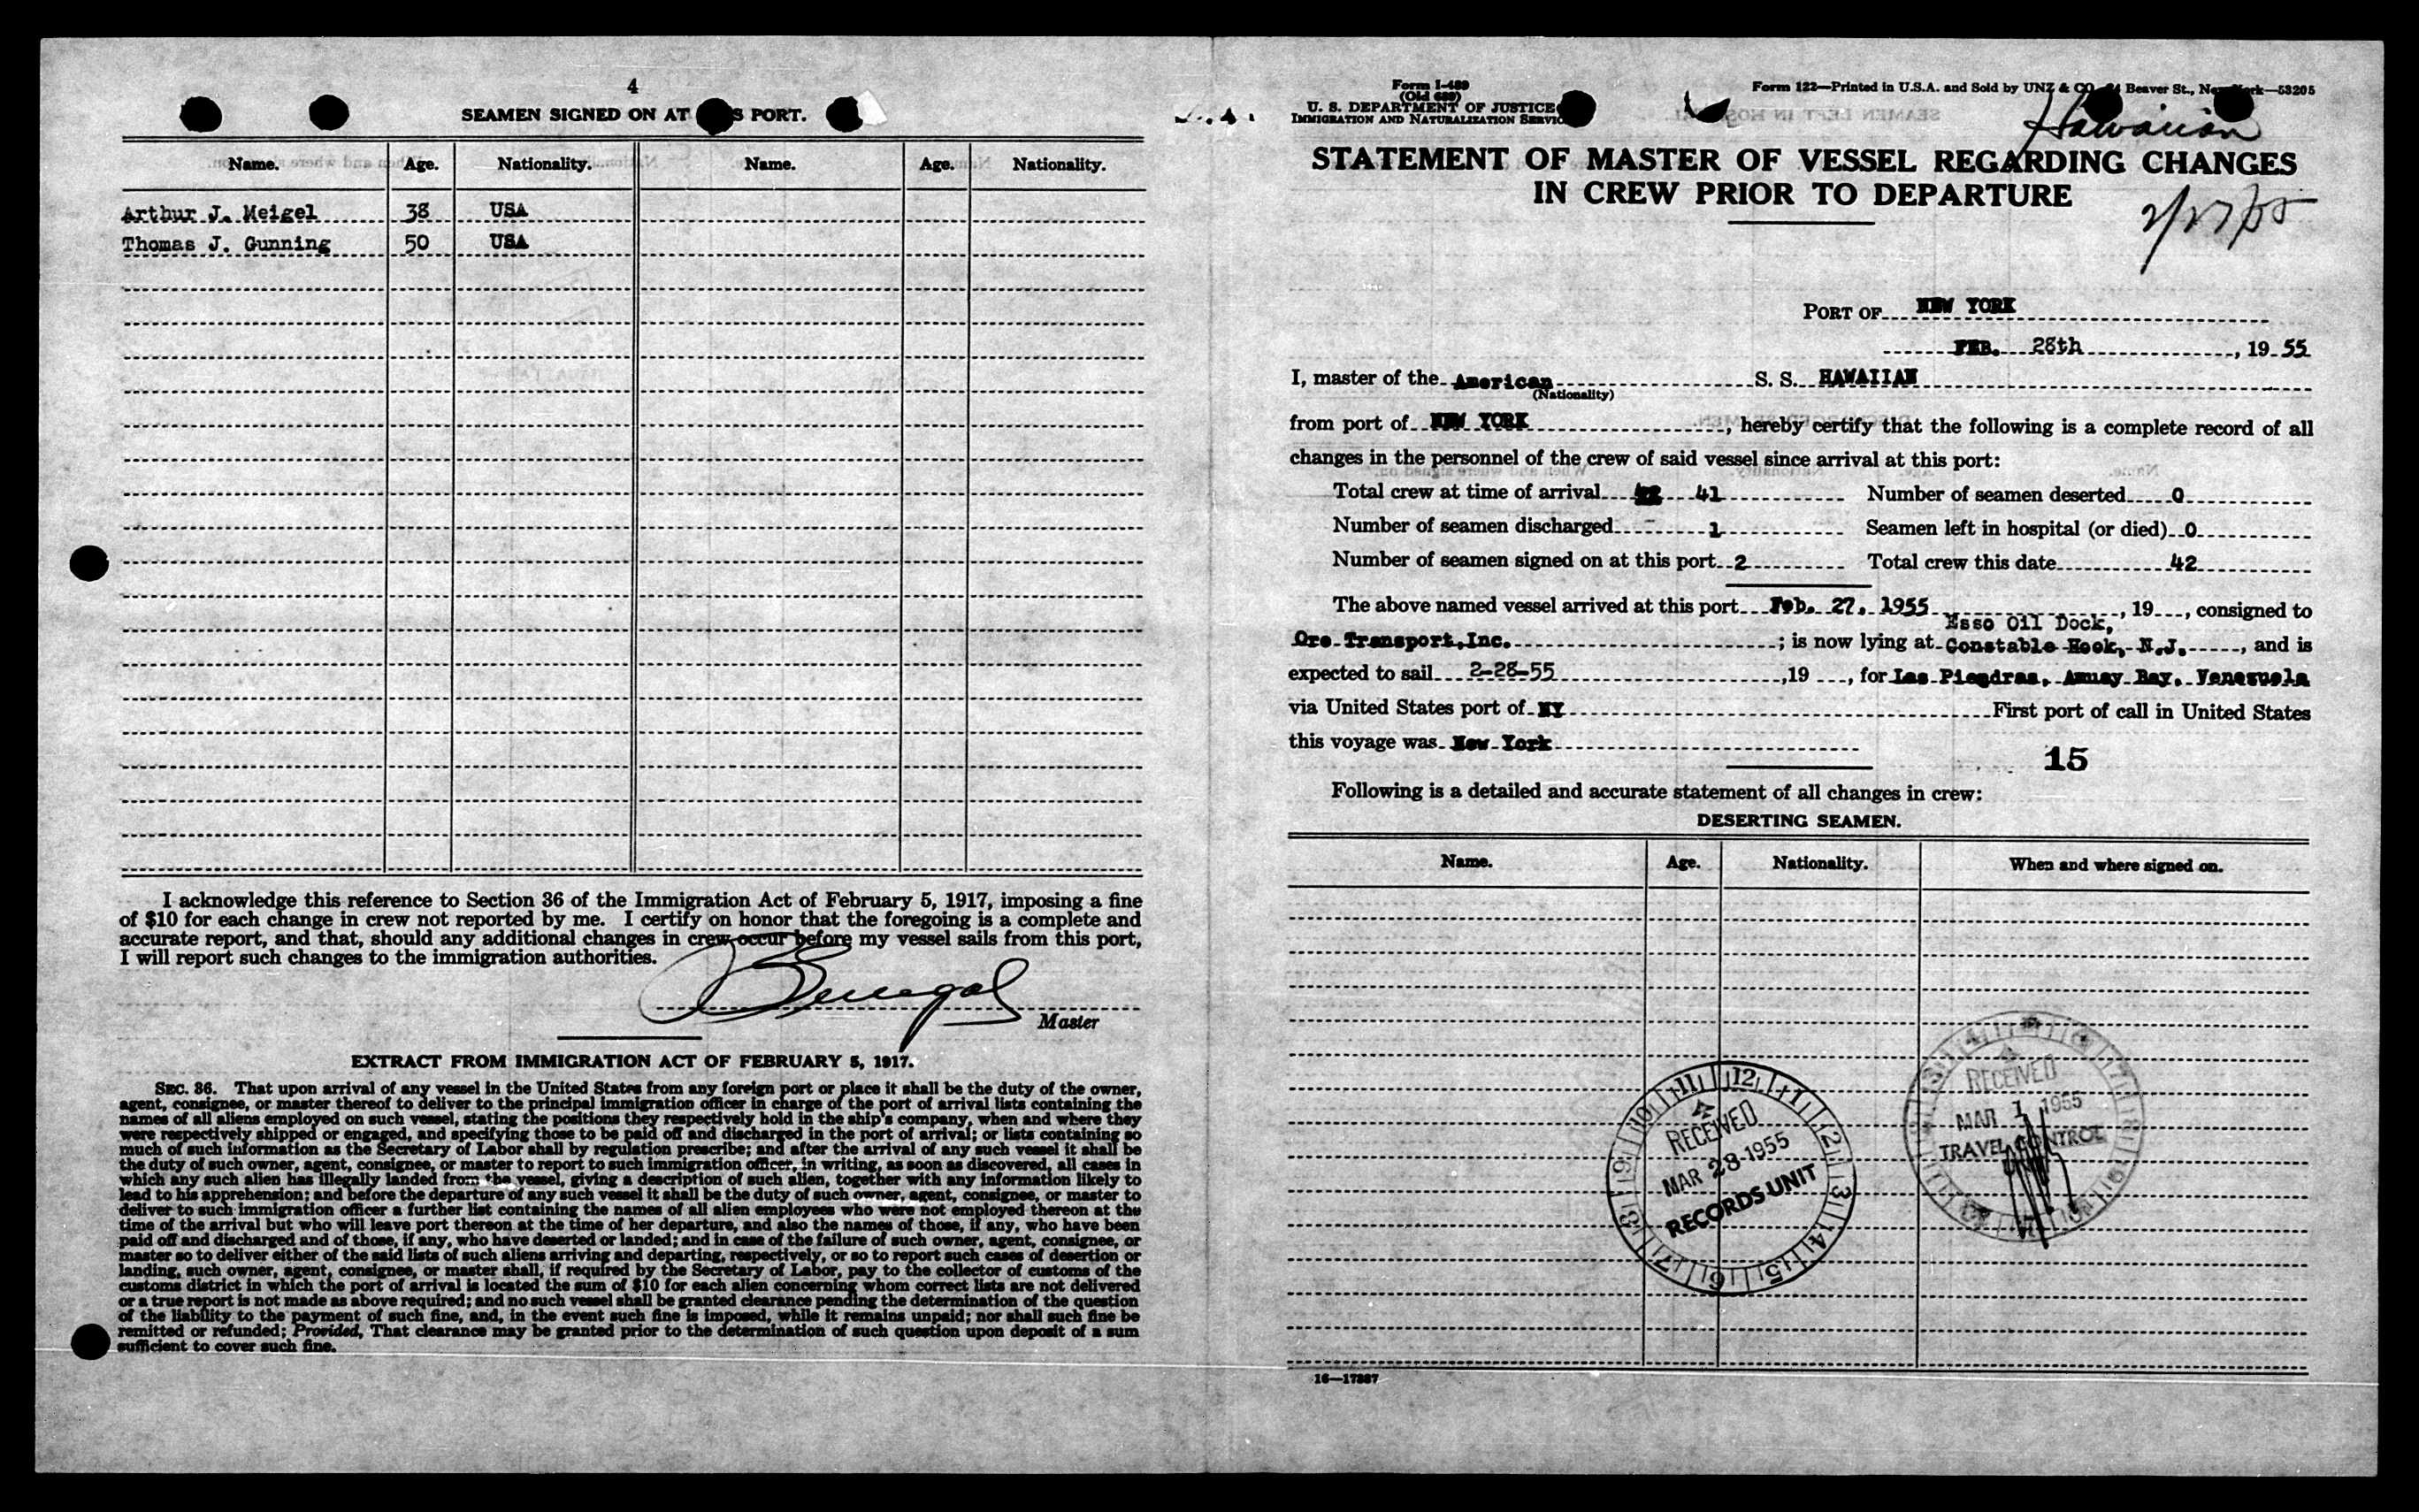 4
SEAMEN SIGNED ON AT S PORT.
Name. Age. Nationality. Name. Age. Nationality.
Arthur J. Meigel 38 USA
Thomas J. Gunning 50 USA
I acknowledge this reference to Section 36 of the Immigration Act of February 5, 1917, imposing a fine
of $10 for each change in crew not reported by me. I certify on honor that the foregoing is a complete and
accurate report, and that, should any additional changes in crew occur before my vessel sails from this port,
I will report such changes to the immigration authorities.
Master
EXTRACT FROM IMMIGRATION ACT OF FEBRUARY 5, 1917.
SEC. 36. That upon arrival of any vessel in the United States from any foreign port or place it shall be the duty of the owner,
agent, consignee, or master thereof to deliver to the principal immigration officer in charge of the port of arrival lists containing the
names of all aliens employed on such vessel, stating the positions they respectively hold in the ship's company, when and where they
were respectively shipped or engaged, and specifying those to be paid off and discharged in the port of arrival; or lists containing so
much of such information as the Secretary of Labor shall by regulation prescribe; and after the arrival of any such vessel it shall be
the duty of such owner, agent, consignee, or master to report to such immigration officer, in writing, as soon as discovered, all cases in
which any such alien has illegally landed from the vessel, giving a description of such alien, together with any information likely to
lead to his apprehension; and before the departure of any such vessel it shall be the duty of such owner, agent, consignee, or master to
deliver to such immigration officer a further list containing the names of all alien employees who were not employed thereon at the
time of the arrival but who will leave port thereon at the time of her departure, and also the names of those, if any, who have been
paid off and discharged and of those, if any, who have deserted or landed; and in case of the failure of such owner, agent, consignee, or
master so to deliver either of the said lists of such aliens arriving and departing, respectively, or so to report such cases of desertion or
landing, such owner, agent, consignee, or master shall, if required by the Secretary of Labor, pay to the collector of customs of the
customs district in which the port of arrival is located the sum of $10 for each alien concerning whom correct lists are not delivered
or a true report is not made as above required; and no such vessel shall be granted clearance pending the determination of the question
of the liability to the payment of such fine, and, in the event such fine is imposed, while it remains unpaid; nor shall such fine be
remitted or refunded; Provided, That clearance may be granted prior to the determination of such question upon deposit of a sum
sufficient to cover such fine.
Form I-489
(Old 689)
U. S. DEPARTMENT OF JUSTICE
IMMIGRATION AND NATURALIZATION SERVIC
Form 122—Printed in U.S.A. and Sold by UNZ & CO Beaver St., New York—53205
Hawaiian
STATEMENT OF MASTER OF VESSEL REGARDING CHANGES
IN CREW PRIOR TO DEPARTURE
2/27/55
PORT OF NEW YORK
FEB. 28th, 19 55
I, master of the American S. S. HAWAIIAN
(Nationality)
from port of NEW YORK, hereby certify that the following is a complete record of all
changes in the personnel of the crew of said vessel since arrival at this port:
Total crew at time of arrival 41 Number of seamen deserted 0
Number of seamen discharged 1 Seamen left in hospital (or died) 0
Number of seamen signed on at this port 2 Total crew this date 42
The above named vessel arrived at this port Feb. 27, 1955, 19, consigned to
Esso Oil Dock,
Ore Transport, Inc.; is now lying at Constable Hook, N.J., and is
expected to sail 2-28-55, 19, for Las Piegdras, Amuay Bay, Venezuela
via United States port of NY First port of call in United States
this voyage was New York
15
Following is a detailed and accurate statement of all changes in crew:
DESERTING SEAMEN.
Name. Age. Nationality. When and where signed on.
RECEIVED
MAR 28 1955
RECORDS UNIT
RECEIVED
MAR 1 1955
TRAVEL CONTROL
16—17887